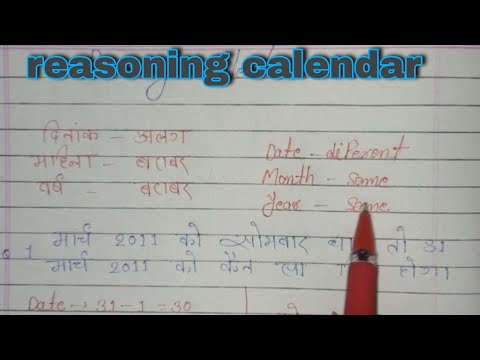 reasoning calendar
दिनांक - अलग
महिना - बराबर
वर्ष - बराबर
Date - diferent
Month - Same
Year - Same
1 मार्च 2011 को सोमवार तो 31
मार्च 2011 को कौन सा होगा
Date → 31-1=30